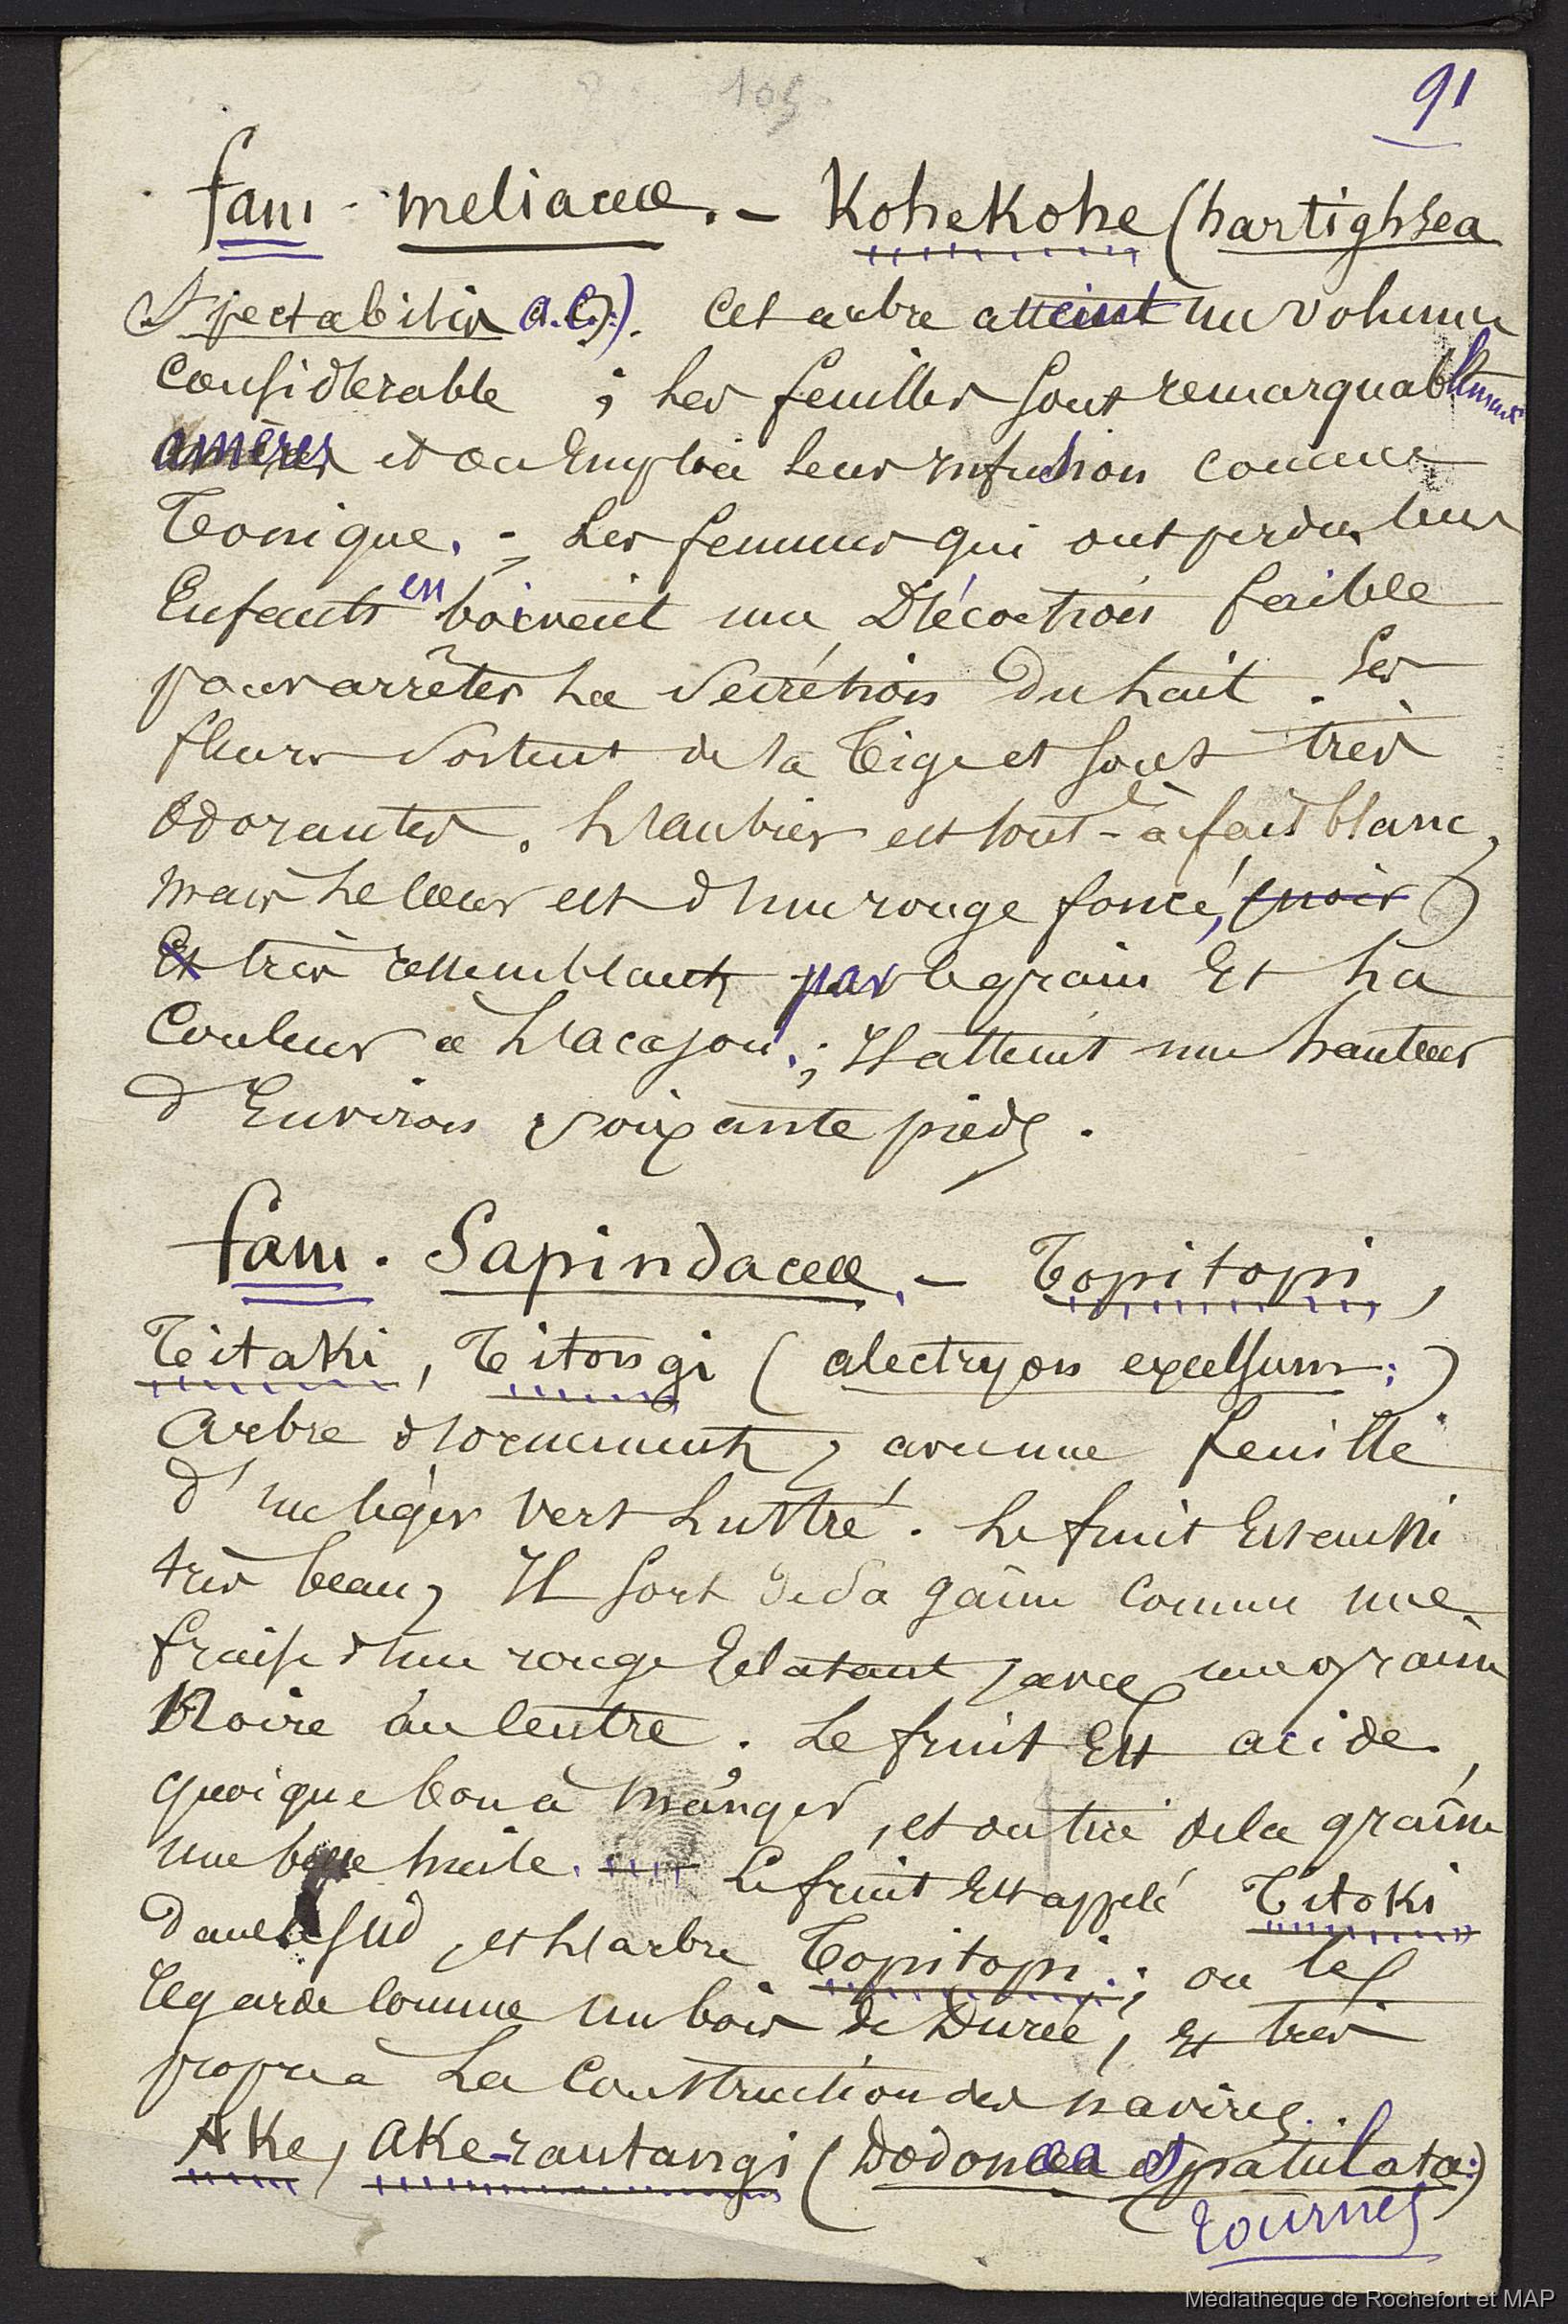 105
91
fam - meliaceæ. - Kohekohe (hartighsea
Spectabilis a.C.)). Cet arbre atteint un volume
Considérable ; Les feuilles sont remarquablement
amères et on Emploie leur infusion comme
Tonique. ; Les femmes qui ont perdu leurs
Enfants en boivent une Décoction faible
pour arrêter la Secrétion Du lait. Les
fleurs Sortent de la Tige et sont très
Odorantes. L'aubier est tout-à-fait blanc,
mais le Coeur est d'un rouge foncé, (noir)
Et très ressemblant par le grain Et La
Couleur à L'acajou. ; Il atteint une hauteur
d'Environ Soixante pieds.
fam. Sapindaceæ. - Topitopi,
Titaki, Titongi (alectryon excelsum:)
Arbre d'ornement, avec une feuille
d'un léger vert Lustré. Le fruit Est aussi
très beau, Il sort de Sa gaîne Comme une
fraise d'un rouge Eclatant, avec une graine
Noire au Centre. Le fruit Est acide,
quoique bon à manger, et on tire de la graine
une bonne huile. Le fruit Est appelé Titoki
dans le Sud, et L'arbre Topitopi. ; on les
Regarde Comme un bois de Durée, et très
propre à La Construction des navires.
Ake, Ake-rautangi (Dodonæa Spatulata:)
tournez
Médiathèque de Rochefort et MAP